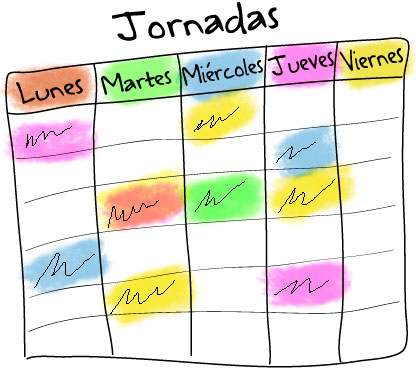 Jornadas
Lunes Martes Miércoles Jueves Viernes